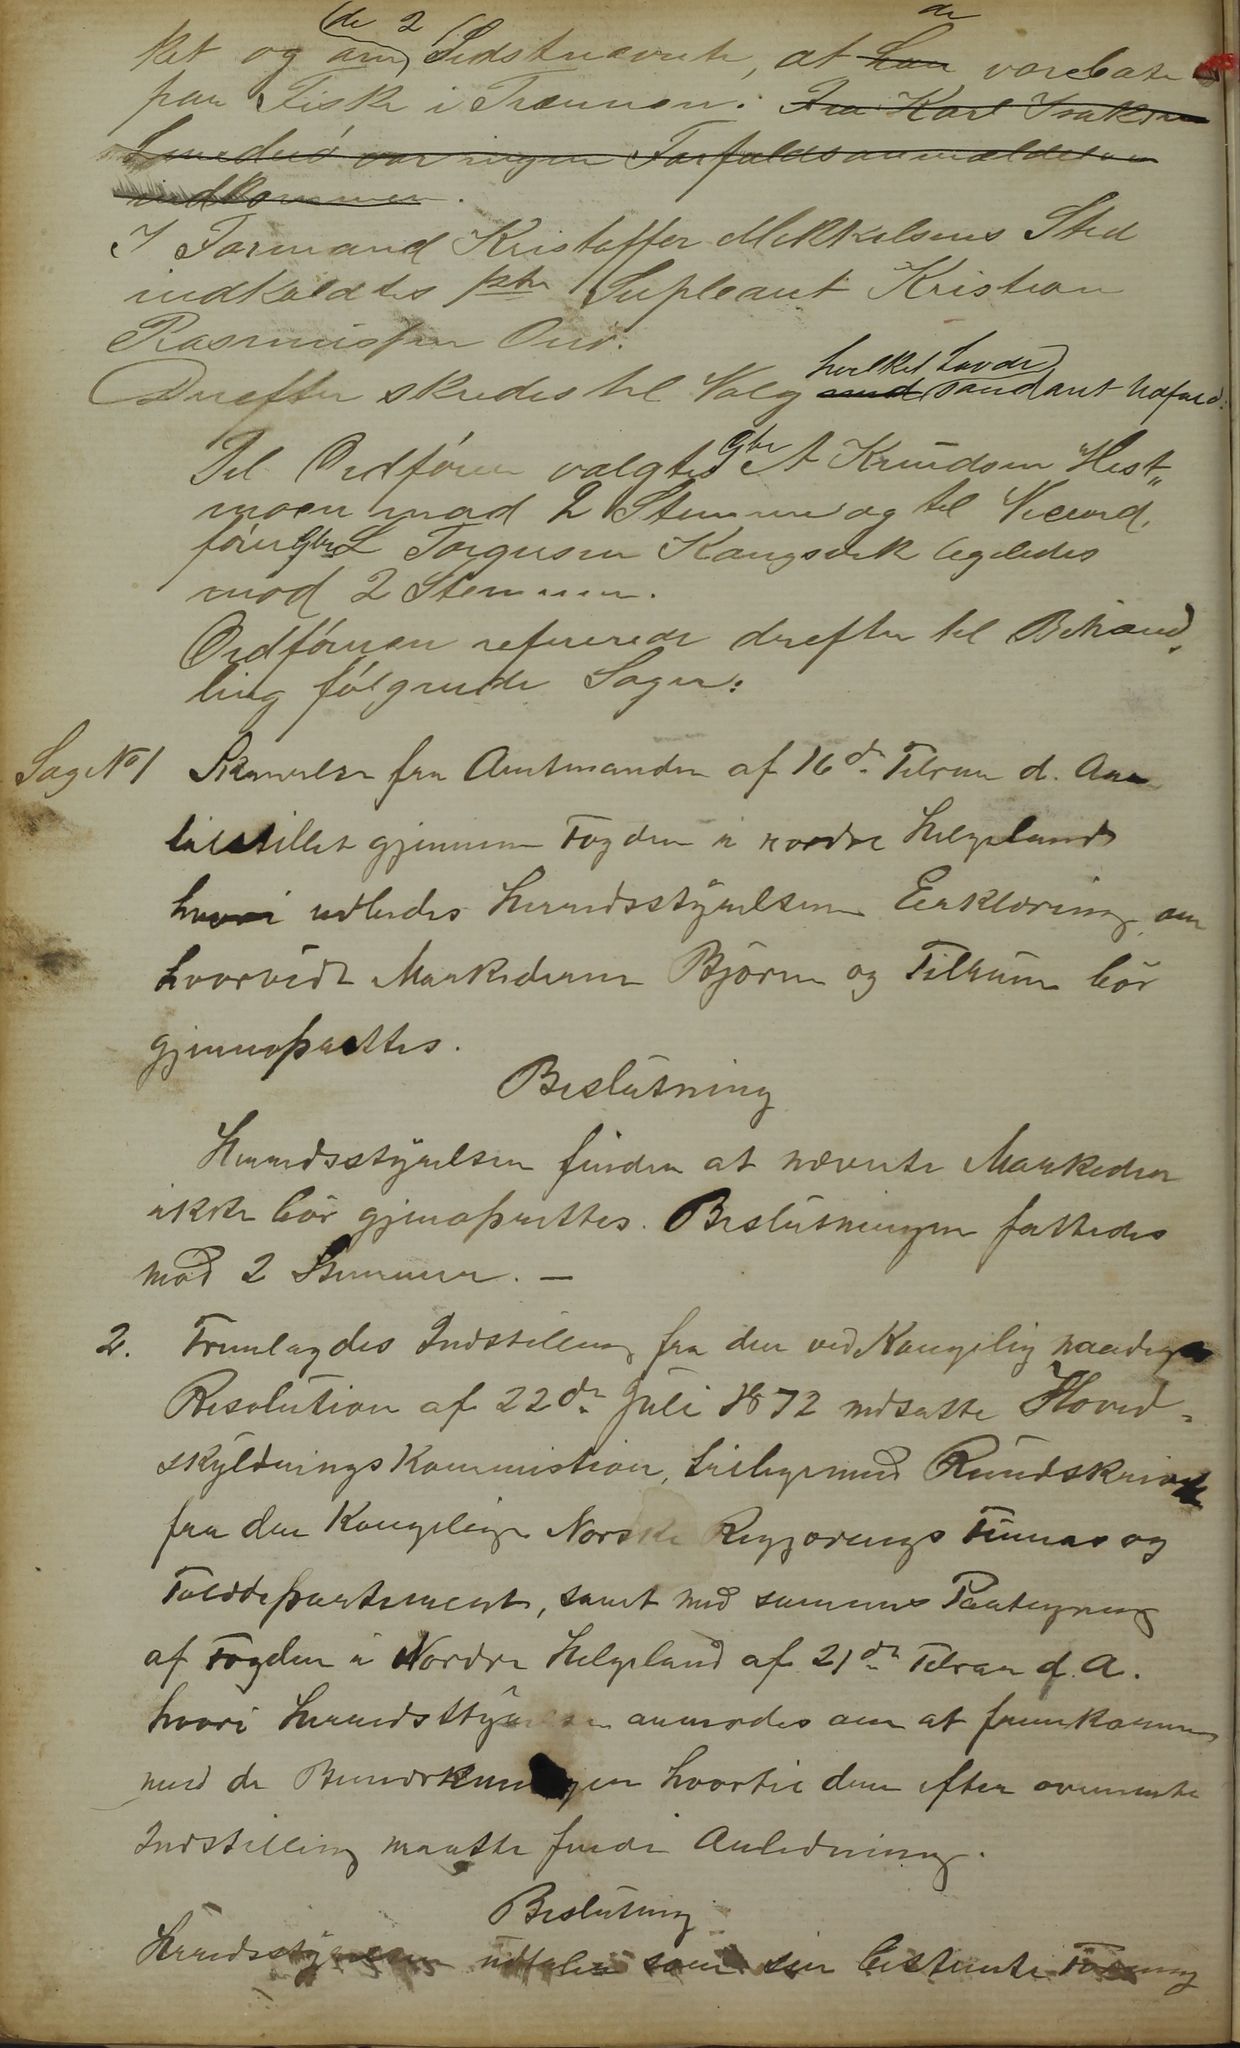 ket og om de 2 Sidstnævnte, at han de vare
paa Fiske i Trænen. Fra Karl Isaksen
var ingen Forfaldsanmeldelse
indkommen.
I Formand Kristoffer Mikkelsens Sted
indkaldtes 1ste Supleant Kristian
Rasmussen
Derefter skredes til Valg med hvilket havde saadant Udfald:
Til Ordfører valgtes Gbr A Knudsen Hest„
moen mod 2 Stemmer og til Viceord„
fører Gbr L Torgersen Kongsvik ligeledes
mod 2 Stemmer.
Ordføreren refererede derefter til Behand„
ling følgende Sager:
Sag No 1 Skrivelse fra Amtmanden af 16de Februar d. Aar
tilstillet gjennem Fogden i nordre Helgeland
hvori udbedes Herredsstyrelsens Erklæring om
hvorvidt Markederne Bjørn og Tilrum bør
gjennoprettes.
Beslutning
Herredsstyrelsen finder at nævnte Markeder
ikke bør gjenoprettes. Beslutningen fattedes
mod 2 Stemmer. —
2. Fremlagdes Indstilling fra den ved Kongelig naadigste
Resolution af 22de Juli 1872 nedsatte Hoved„
skyldningskommission, tilligemed Rundskrivelse
fra den Kongelige Norske Regjerings Finans og
Tolddepartement, samt med sammes Paategning
af Fogden i Nordre Helgeland af 21de Februar d. A.
hvori Herredsstyrelsen anmodes om at fremkomme
med de Bemærkninger hvortil den efter ovennævnte
Indstilling maatte finde Anledning.
Beslutning
Herredsstyrelsen udtaler som sin bestemte Formening